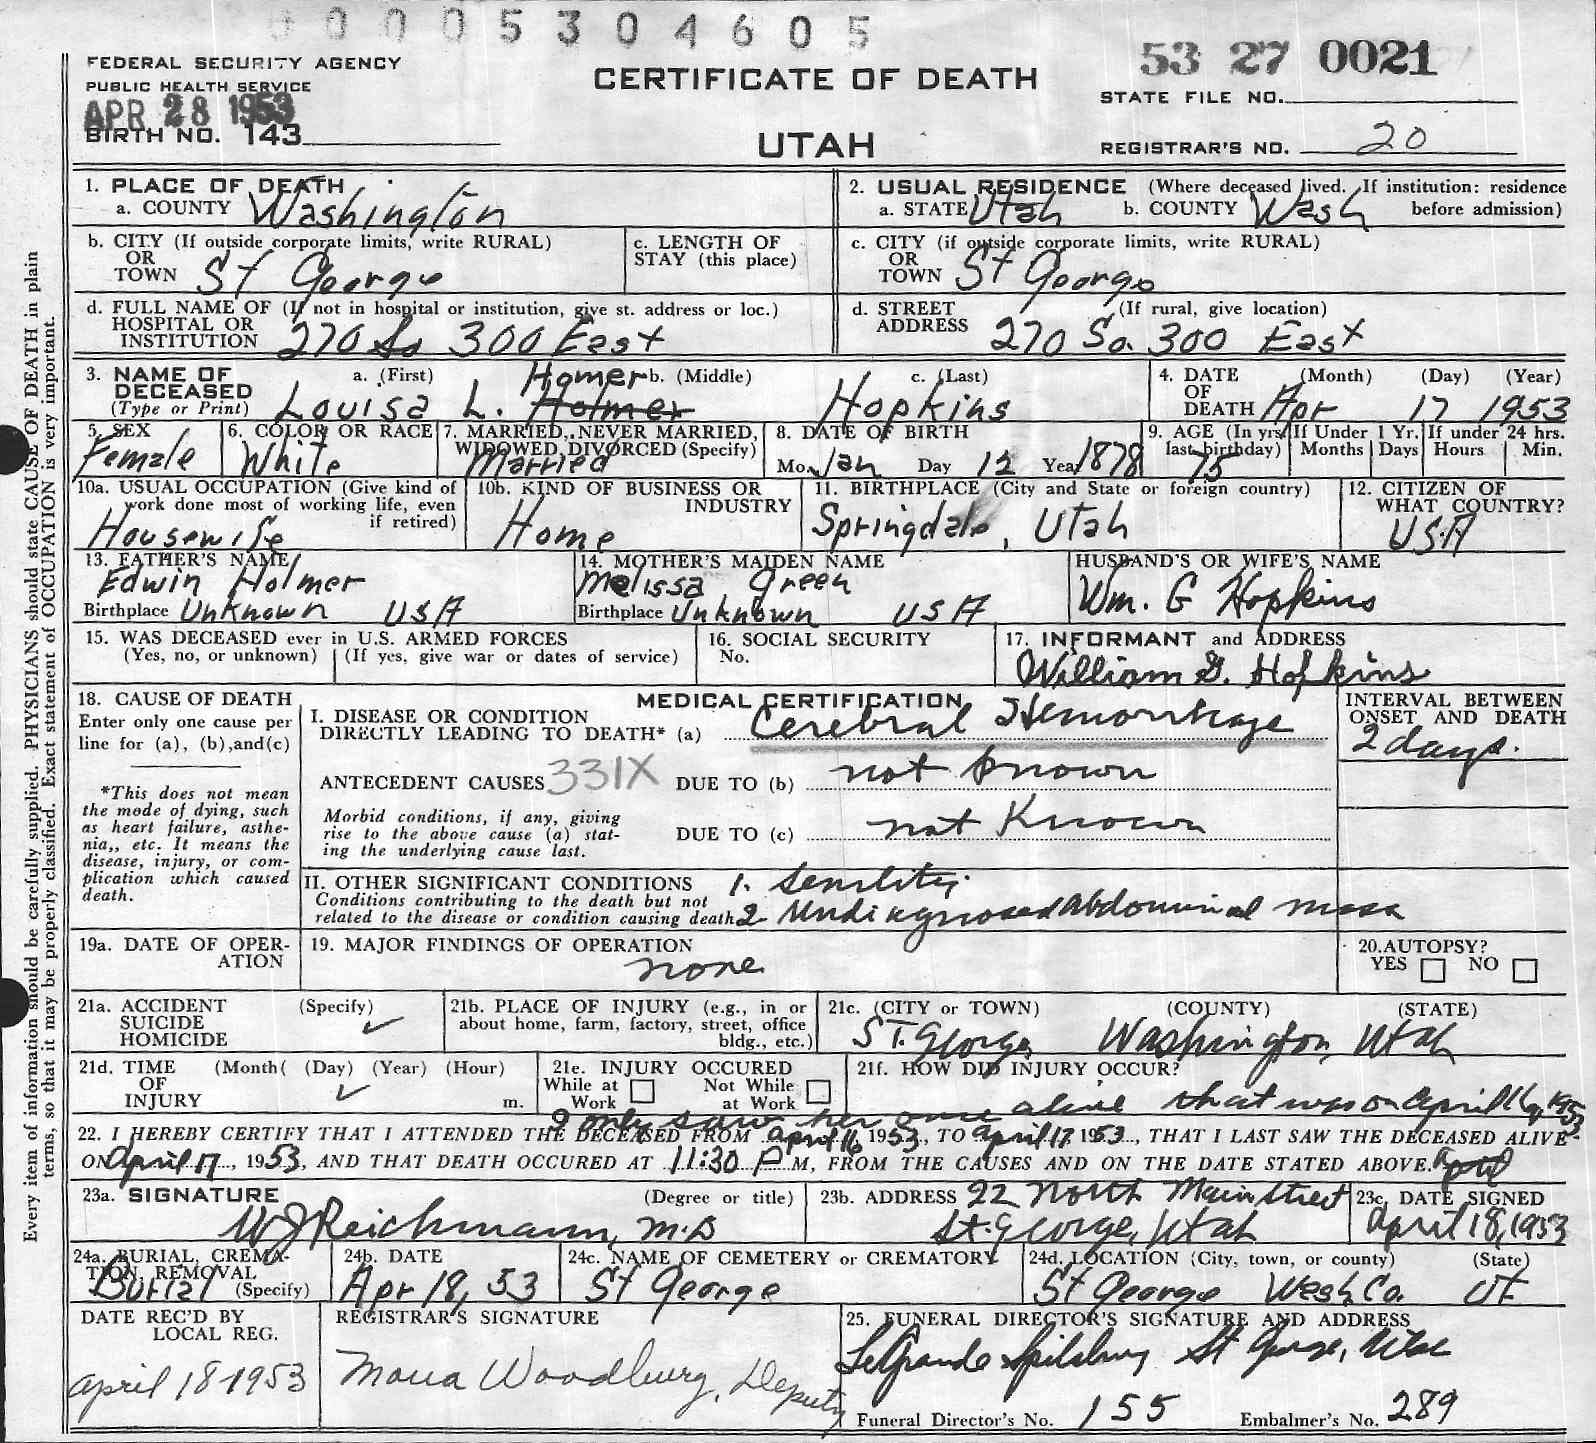 0 0 0 0 5 3 0 4 6 0 5
FEDERAL SECURITY AGENCY
PUBLIC HEALTH SERVICE
APR 28 1953
BIRTH NO. 143
CERTIFICATE OF DEATH
UTAH
53 27 0021
STATE FILE NO.
REGISTRAR'S NO. 20
Every item of information should be carefully supplied. PHYSICIANS should state CAUSE OF DEATH in plain
terms, so that it may be properly classified. Exact statement of OCCUPATION is very important.
1. PLACE OF DEATH
a. COUNTY Washington
2. USUAL RESIDENCE (Where deceased lived. If institution: residence
a. STATE Utah b. COUNTY Wash before admission)
b. CITY (If outside corporate limits, write RURAL)
OR
TOWN St George
c. LENGTH OF
STAY (this place)
c. CITY (if outside corporate limits, write RURAL)
OR
TOWN St George
d. FULL NAME OF (If not in hospital or institution, give st. address or loc.)
HOSPITAL OR
INSTITUTION 270 So 300 East
d. STREET (If rural, give location)
ADDRESS 270 So. 300 East
3. NAME OF a. (First) Homer b. (Middle) c. (Last)
DECEASED
(Type or Print) Louisa L. Holmer Hopkins
4. DATE (Month) (Day) (Year)
OF
DEATH Apr 17 1953
5. SEX
Female
6. COLOR OR RACE
White
7. MARRIED, NEVER MARRIED,
WIDOWED, DIVORCED (Specify)
Married
8. DATE OF BIRTH
Mo. Jan Day 12 Year 1878
9. AGE (In yrs. If Under 1 Yr. If under 24 hrs.
last birthday) Months Days Hours Min.
75
10a. USUAL OCCUPATION (Give kind of
work done most of working life, even
if retired)
Housewife
10b. KIND OF BUSINESS OR
INDUSTRY
Home
11. BIRTHPLACE (City and State or foreign country)
Springdale, Utah
12. CITIZEN OF
WHAT COUNTRY?
USA
13. FATHER'S NAME
Edwin Holmer
Birthplace Unknown USA
14. MOTHER'S MAIDEN NAME
Melissa Green
Birthplace Unknown USA
HUSBAND'S OR WIFE'S NAME
Wm. G Hopkins
15. WAS DECEASED ever in U.S. ARMED FORCES
(Yes, no, or unknown) (If yes, give war or dates of service)
16. SOCIAL SECURITY
No.
17. INFORMANT and ADDRESS
William G. Hopkins
18. CAUSE OF DEATH
Enter only one cause per
line for (a), (b),and(c)
*This does not mean
the mode of dying, such
as heart failure, asthe-
nia,, etc. It means the
disease, injury, or com-
plication which caused
death.
MEDICAL CERTIFICATION
I. DISEASE OR CONDITION
DIRECTLY LEADING TO DEATH* (a) Cerebral Hemorrhage
ANTECEDENT CAUSES 331X DUE TO (b) not known
Morbid conditions, if any, giving
rise to the above cause (a) stat-
ing the underlying cause last.
DUE TO (c) not Known
INTERVAL BETWEEN
ONSET AND DEATH
2 days.
II. OTHER SIGNIFICANT CONDITIONS 1. Senility
Conditions contributing to the death but not
related to the disease or condition causing death 2 Undiagnosed abdominal mass
19a. DATE OF OPER-
ATION
19. MAJOR FINDINGS OF OPERATION
none
20.AUTOPSY?
YES NO
21a. ACCIDENT (Specify)
SUICIDE ✓
HOMICIDE
21b. PLACE OF INJURY (e.g., in or
about home, farm, factory, street, office
bldg., etc.)
21c. (CITY or TOWN) (COUNTY) (STATE)
St. George, Washington, Utah
21d. TIME (Month( (Day) (Year) (Hour)
OF ✓
INJURY m.
21e. INJURY OCCURED
While at Not While
Work at Work
21f. HOW DID INJURY OCCUR?
I only saw her once alive that was on April 16, 1953
22. I HEREBY CERTIFY THAT I ATTENDED THE DECEASED FROM april 16, 1953, TO april 17 1953, THAT I LAST SAW THE DECEASED ALIVE
ON april 17, 1953, AND THAT DEATH OCCURED AT 11:30 P M, FROM THE CAUSES AND ON THE DATE STATED ABOVE.
23a. SIGNATURE (Degree or title)
W J Reichmann, M.D
23b. ADDRESS 22 North Main Street
St. George, Utah
23c. DATE SIGNED
april 18, 1953
24a. BURIAL, CREMA-
TION, REMOVAL
Burial (Specify)
24b. DATE
Apr 18, 53
24c. NAME OF CEMETERY or CREMATORY
St George
24d. LOCATION (City, town, or county) (State)
St George Wash Co. UT
DATE REC'D BY
LOCAL REG.
april 18-1953
REGISTRAR'S SIGNATURE
Mona Woodbury, Deputy
25. FUNERAL DIRECTOR'S SIGNATURE AND ADDRESS
LeGrande Spilsbury St George, Utah
Funeral Director's No. 155 Embalmer's No. 289